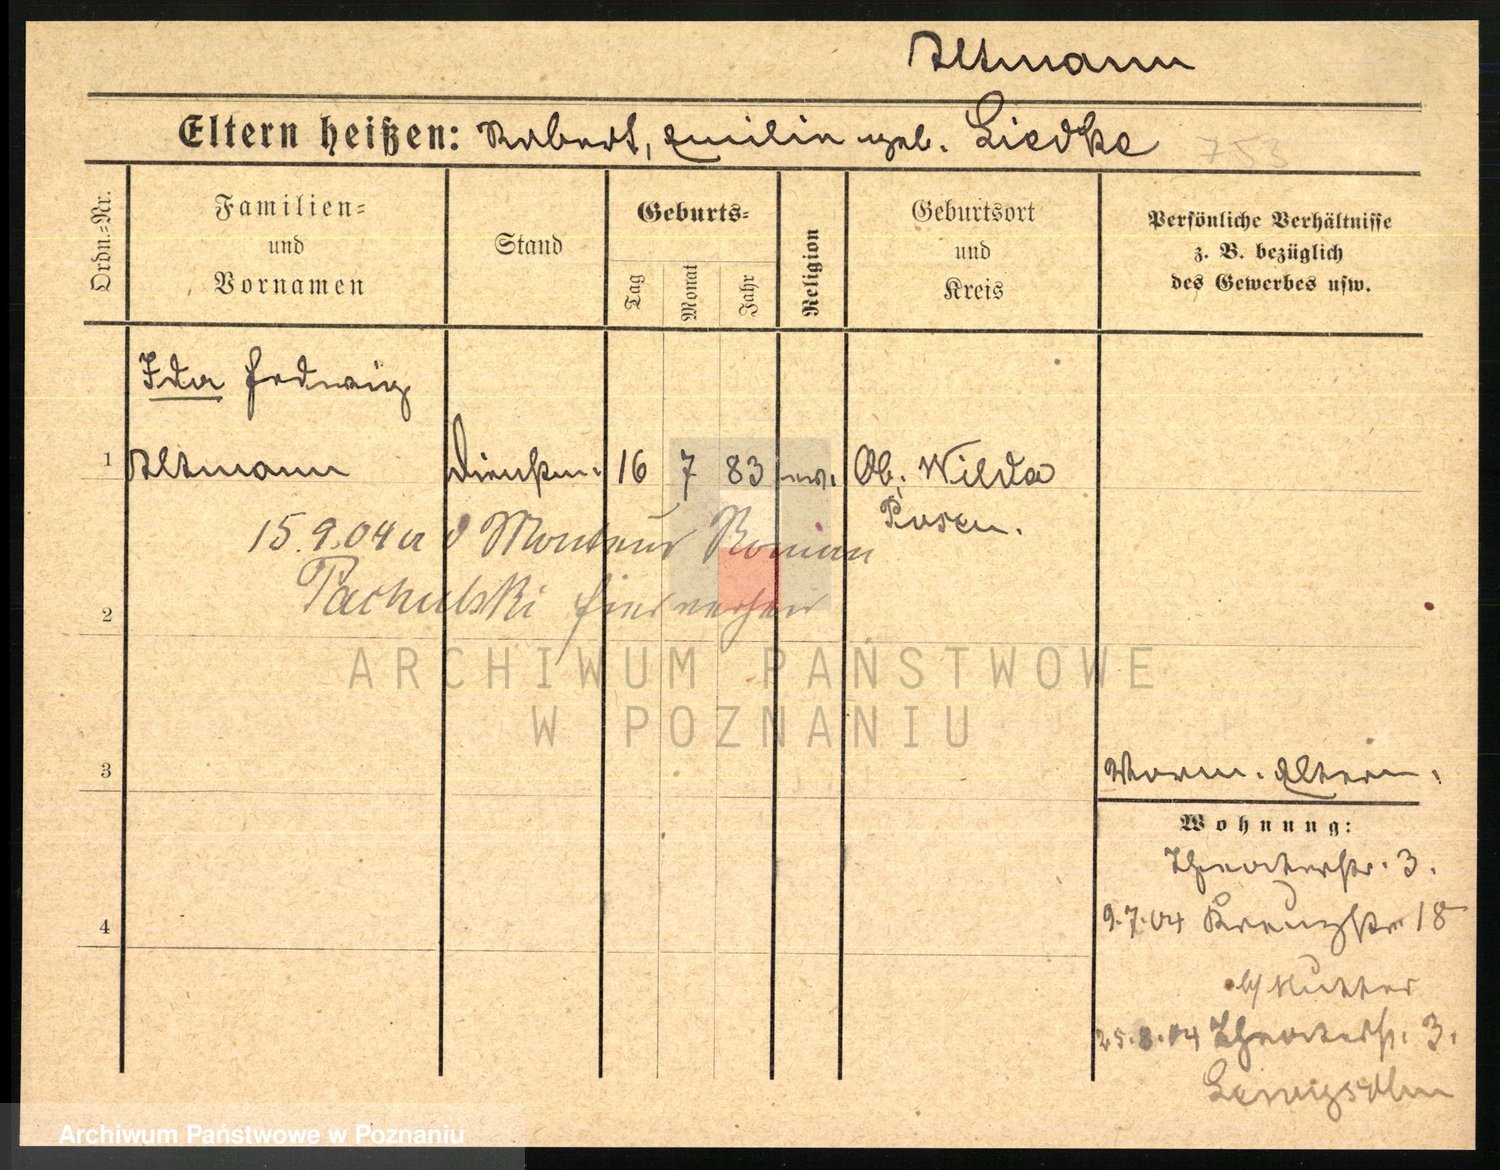 Altmann
Eltern heißen: Robert, Emilie geb. Liedke
753
Ordn.-Nr.
Familien-
und
Vornamen
Stand
Geburts-
Tag
Monat
Jahr
Religion
Geburtsort
und
Kreis
Persönliche Verhältnisse
z. B. bezüglich
des Gewerbes usw.
Ida Hedwig
1 Altmann 16 7 83 ev. Ob. Wilda
Posen.
15.9.04 a d Monteur Roman
Pachulski hier verheir
2
ARCHIWUM PAŃSTWOWE
W POZNANIU
3
Eltern.
Wohnung:
Theaterstr. 3.
9.7.04 Kreuzstr 18
4
b/ Mutter
25.8.04 Theaterstr. 3.
Archiwum Państwowe w Poznaniu